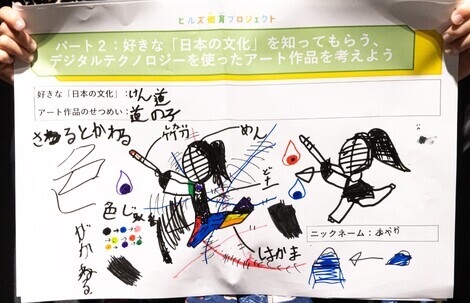 ヒルズ街育プロジェクト
パート2：好きな「日本の文化」を知ってもらう、
デジタルテクノロジーを使ったアート作品を考えよう
好きな「日本の文化」：けん道
アート作品のせつめい：道の子
さわるとかわる
竹刀
めん
色
色
がかわる
はかま
ニックネーム：